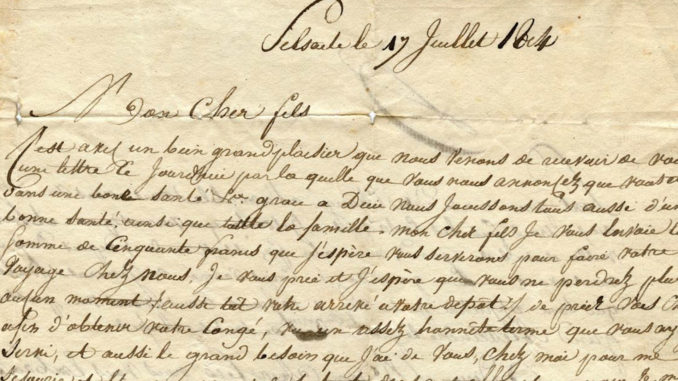 le 17 Juillet 18 4
Mon Cher fils
C'est avec un bien grand plaisier que nous venons de recevoir de vou
une lettre Ce Jourdhui par la quelle que vous nous annoncez que
dans une bone santé grace a Dieu nous Jouissons tous aussi d'un
bonne santé, ainsi que toutte la famille. mon cher fils Je vous
Somme de Cinquante que J'espère vous serviront pour faire votre
Voyage Chez nous, Je vous prie et J'espère que vous ne perdrez plus
aucun moment aussi tot votre arrivé a votre depot de prier
afin d'obtenir votre Congé, un assez honnette que vous ay
Servi, et aussi le grand besoin que J'ai de vous, Chez moi pour me